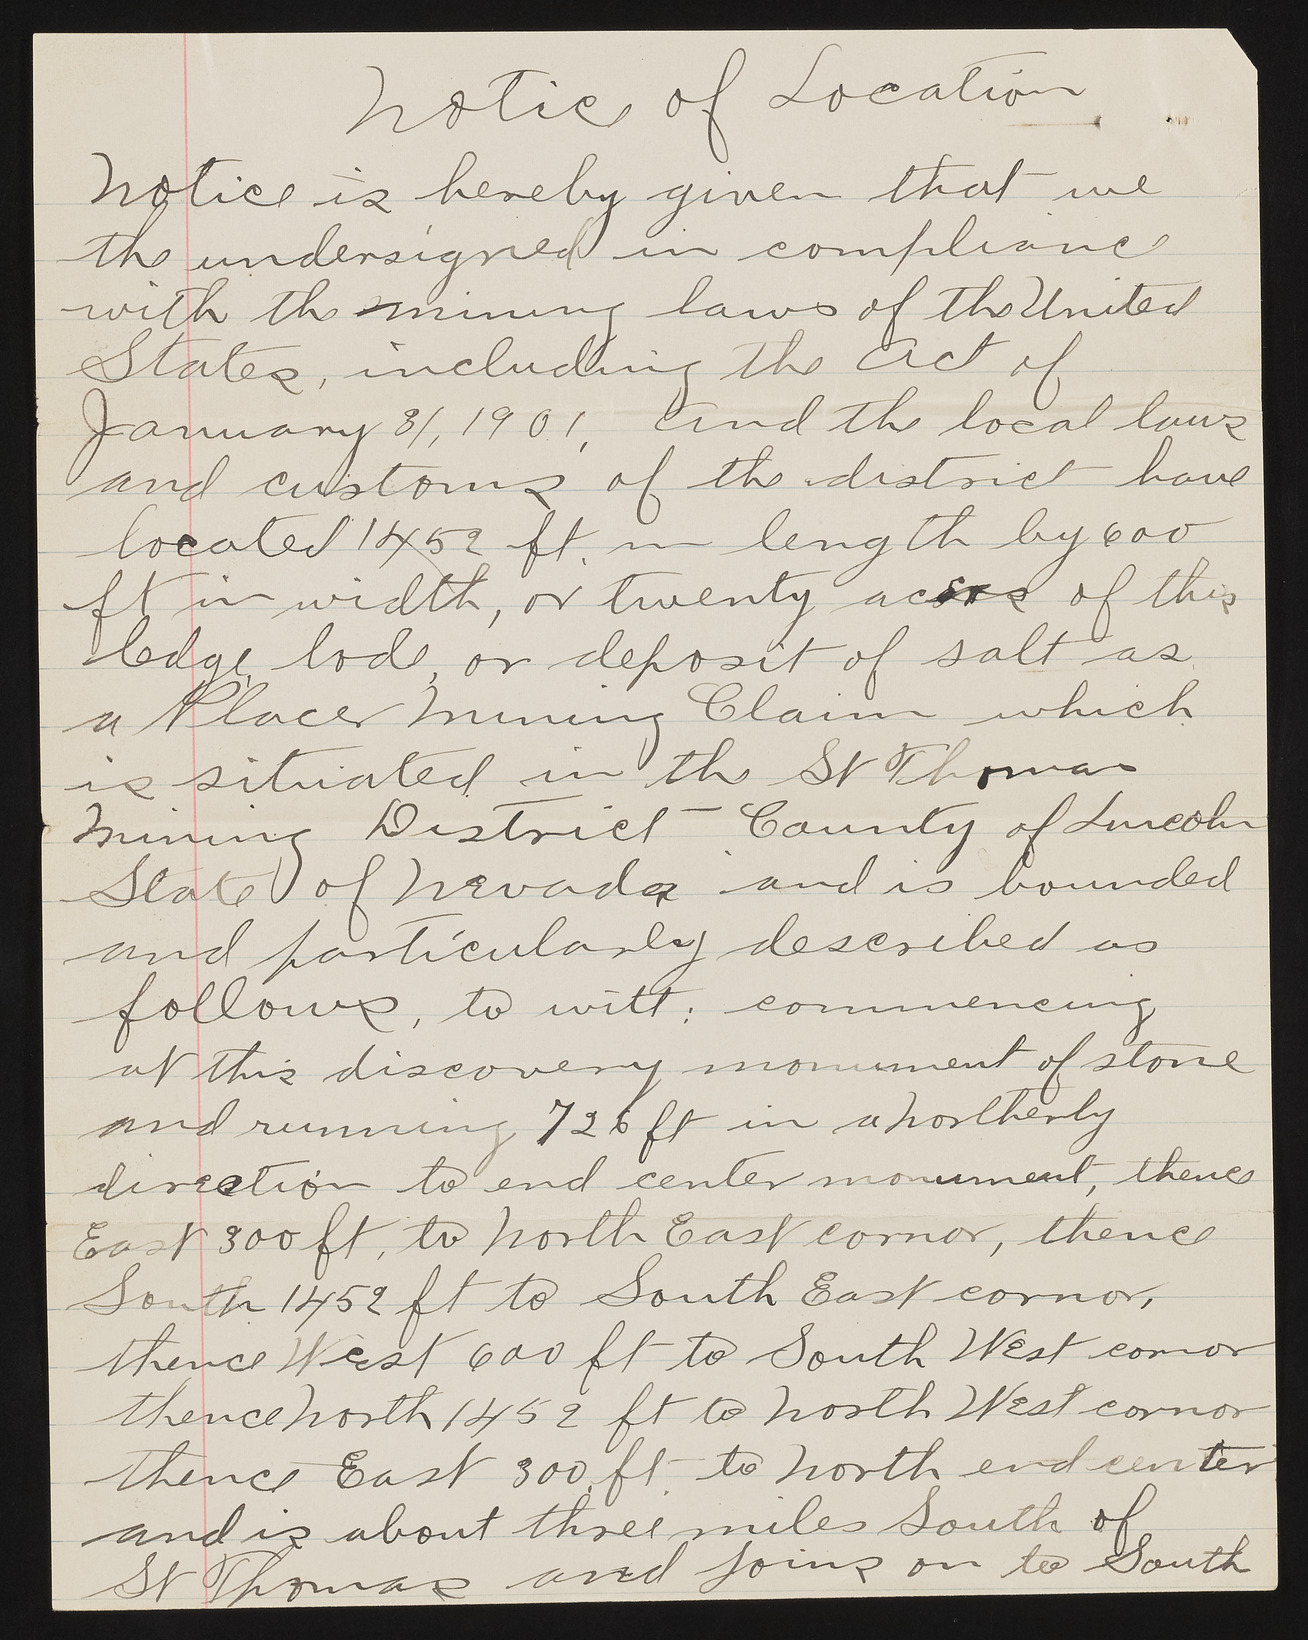 Notice of Location
Notice is hereby given that we
the undersigned in compliance
with the mining laws of the United
States, including the Act of
January 31, 1901, and the local laws
and customs of the district have
located 1452 ft. in length by 600
ft in width, or twenty acres of this
ledge, lode, or deposit of salt as
a Placer Mining Claim which
is situated in the St Thomas
Mining District County of Lincoln
State of Nevada and is bounded
and particularly described as
follows, to witt: commencing
at this discovery monument of stone
and running 726 ft in a northerly
direction to end center monument, thence
East 300 ft, to North East cornor, thence
South 1452 ft to South East cornor,
thence West 600 ft to South West cornor
thence North 1452 ft to North West cornor
thence East 300 ft to North end center
and is about three miles South of
St Thomas and joins on to South